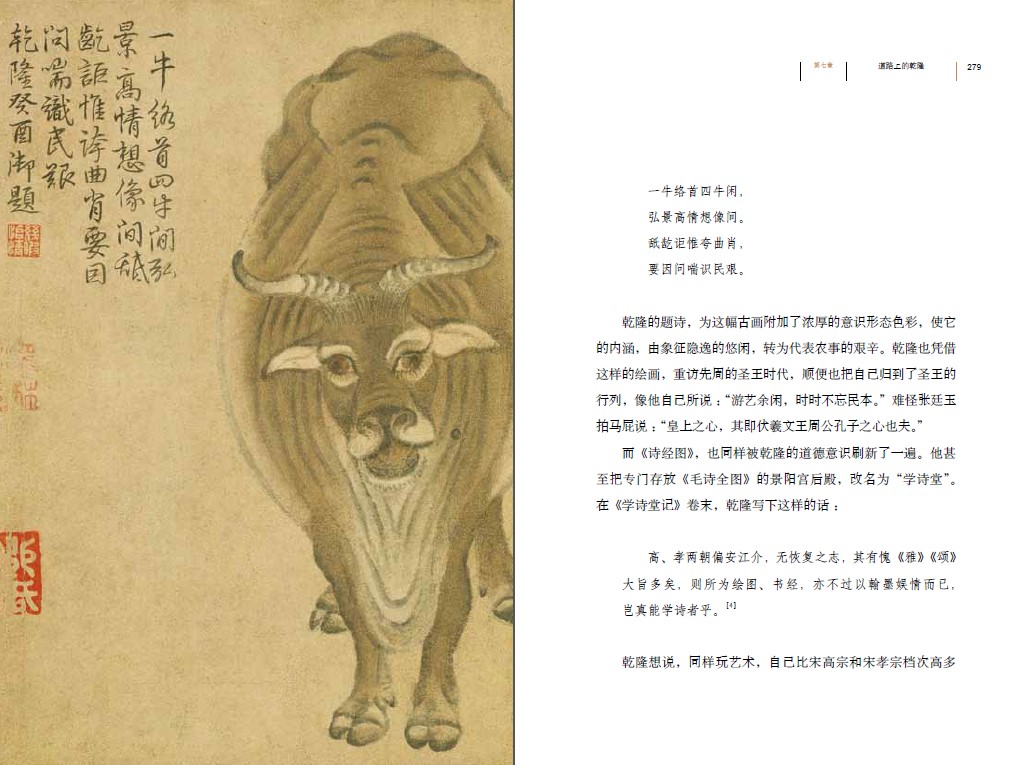 一牛络首四牛间弘
景高情想像间舐
龁讵惟誇曲肖要因
问喘識民艱
乾隆癸酉御題
第七章
道路上的乾隆
279
一牛络首四牛闲，
弘景高情想像间。
舐龁讵惟夸曲肖，
要因问喘识民艰。
乾隆的题诗，为这幅古画附加了浓厚的意识形态色彩，使它
的内涵，由象征隐逸的悠闲，转为代表农事的艰辛。乾隆也凭借
这样的绘画，重访先周的圣王时代，顺便也把自己归到了圣王的
行列，像他自己所说：“游艺余闲，时时不忘民本。”难怪张廷玉
拍马屁说：“皇上之心，其即伏羲文王周公孔子之心也夫。”
而《诗经图》，也同样被乾隆的道德意识刷新了一遍。他甚
至把专门存放《毛诗全图》的景阳宫后殿，改名为“学诗堂”。
在《学诗堂记》卷末，乾隆写下这样的话：
高、孝两朝偏安江介，无恢复之志，其有愧《雅》《颂》
大旨多矣，则所为绘图、书经，亦不过以翰墨娱情而已，
岂真能学诗者乎。[4]
乾隆想说，同样玩艺术，自己比宋高宗和宋孝宗档次高多